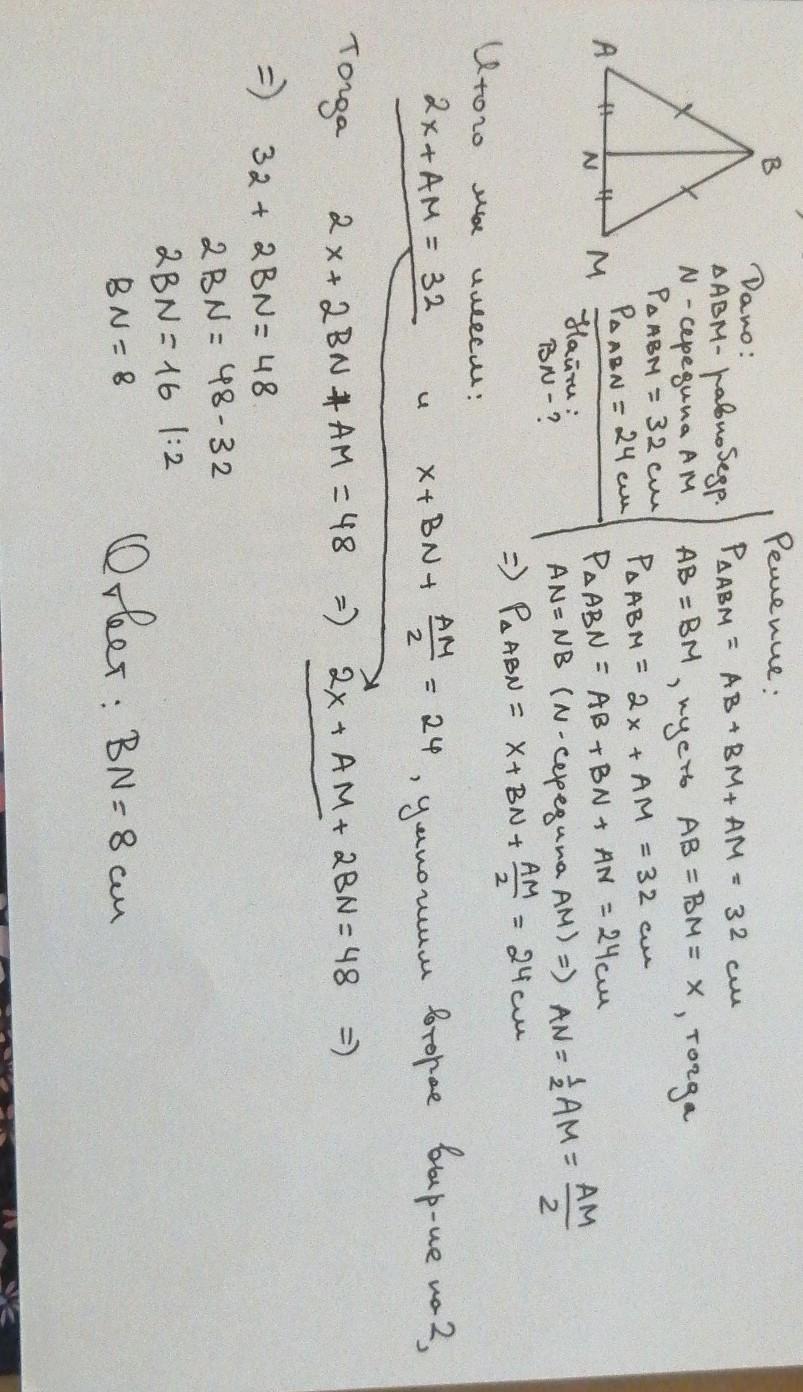 B
A
N
M
Дано:
ΔABM - равнобедр.
N - середина AM
PΔABM = 32 см
PΔABN = 24 см
Найти:
BN - ?
Решение:
PΔABM = AB + BM + AM = 32 см
AB = BM, пусть AB = BM = x, тогда
PΔABM = 2x + AM = 32 см
PΔABN = AB + BN + AN = 24 см
AN = NB (N - середина AM) => AN = 1/2 AM = AM/2
=> PΔABN = x + BN + AM/2 = 24 см
Итого мы имеем:
2x + AM = 32 и x + BN + AM/2 = 24, умножим второе выр-ие на 2,
тогда 2x + 2BN + AM = 48 => 2x + AM + 2BN = 48 =>
=> 32 + 2BN = 48
2BN = 48 - 32
2BN = 16 |:2
BN = 8
Ответ: BN = 8 см